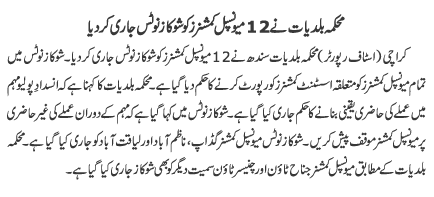 محکمہ بلدیات نے 12 میونسپل کمشنرز کو شوکاز نوٹس جاری کر دیا
کراچی (اسٹاف رپورٹر) محکمہ بلدیات سندھ نے 12 میونسپل کمشنرز کو شوکاز نوٹس جاری کر دیا۔ شوکاز نوٹس میں
تمام میونسپل کمشنرز کو متعلقہ اسسٹنٹ کمشنرز کو رپورٹ کرنے کا حکم دیا گیا ہے۔ محکمہ بلدیات کا کہنا ہے کہ انسداد پولیو مہم
میں عملے کی حاضری یقینی بنانے کا حکم دیا گیا ہے۔ شوکاز نوٹس میں کہا گیا ہے کہ مہم کے دوران عملے کی غیر حاضری
پر میونسپل کمشنرز موقف پیش کریں۔ شوکاز نوٹس میونسپل کمشنرز گڈاپ، ناظم آباد اور لیاقت آباد کو جاری کیا گیا ہے۔ محکمہ
بلدیات کے مطابق میونسپل کمشنرز جناح ٹاؤن اور چنیسر ٹاؤن سمیت دیگر کو بھی شوکاز جاری کیا گیا ہے۔